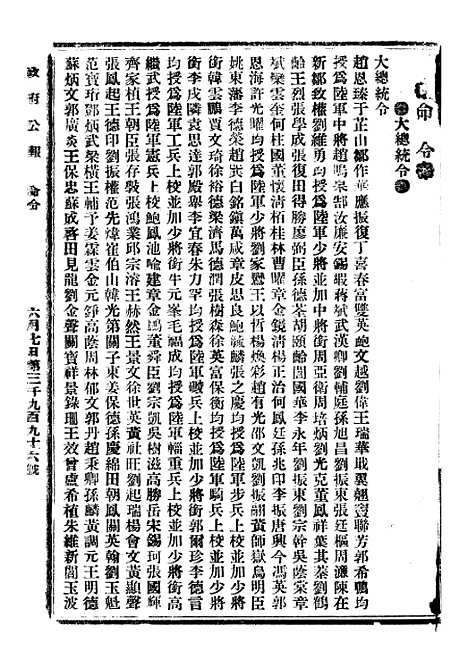 命令
大總統令
大總統令
趙恩臻于芷山鄒作華應振復丁喜春富雙英鮑文越劉偉王瑞華戢翼翹竇聯芳郭希鵬均
授為陸軍中將趙鳴皋郜汝廉安錫嘏蔣斌武漢卿劉輔庭孫旭昌劉振東張廷樞周濂陳在
新鄒致權劉維勇均授為陸軍少將並加中將銜周亞衛周培炳劉光克董鳳祥葉其蓁劉鶴
齡王烈張學成張復田得勝廖弼臣孫德荃胡頤齡閻國華李永年劉振東劉宗幹吳蔭棠章
斌欒雲奎何柱國董懷清栢桂林曹曜章金鏡清楊正治何鳳廷孫兆印李振唐興今馮英郭
恩海許光曜均授為陸軍少將劉家鸞王以哲楊煥彩趙有光邵文凱劉振翮黃師嶽烏明臣
姚東藩李德榮趙 白銘鎮萬咸章皮思良鮑毓麟張之慶均授為陸軍步兵上校並加少將
衛韓雲鵬賈文琦徐裕德梁濟馬德潤張樹森徐英富保衡均授為陸軍騎兵上校並加少將
銜李戌隣袁思達郭殿舉李宜春朱力罕均授為陸軍礮兵上校並加少將銜郭爾珍李德言
均授為陸軍工兵上校並加少將銜牛元峯毛福成均授為陸軍輜重兵上校並加少將銜高
繼武授為陸軍憲兵上校鮑鳳池喻建章金 董舜臣劉宗凱吳樹滋高勝岳宋錫珂張國輝
齊家植王朝臣張存穀張鴻業邱宗濬王赫然王景文徐世英黃社旺劉起瑞楊會文黃顯聲
張鳳起王德印劉振權范先煒崔伯山韓光第關子東姜保德孫慶綿田朝鳳關英翰劉玉魁
范寶珩鄧炳武梁橫王輔予姜霖雲金元錚高蔭周林郁文郭丹趙秉卿孫麟黃調元王明德
蘇炳文郭廣炎王保忠蘇成 田見龍劉金聲關寶祥景錄珊王效曾盧希植朱維新閻玉波
政府公報 命令
六月七日第三千九百九十六號